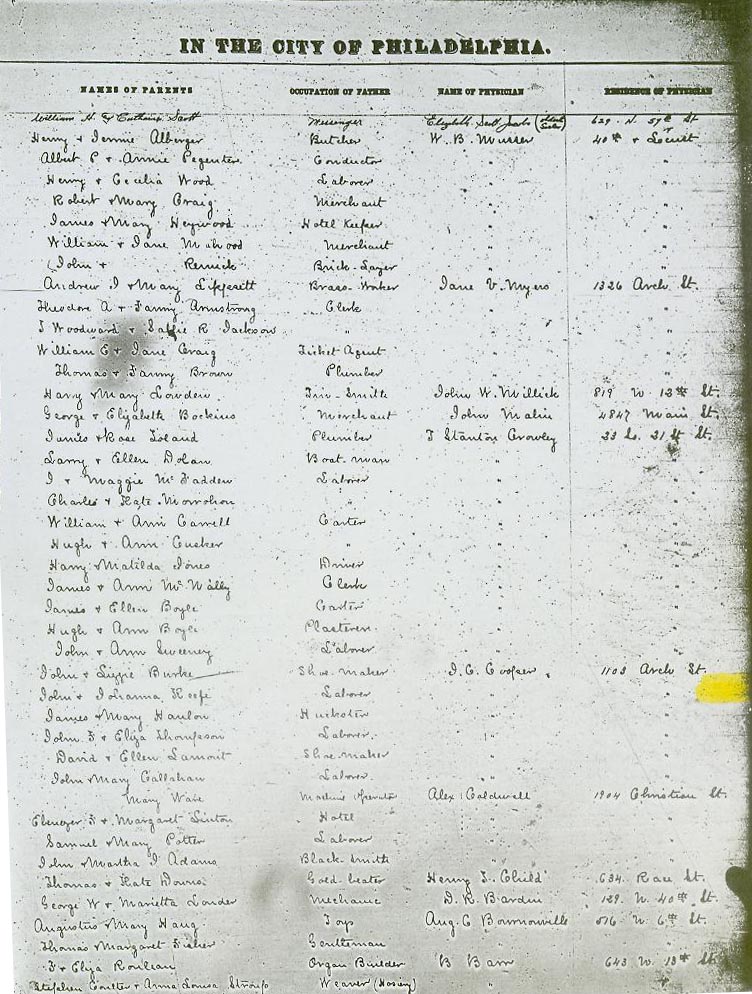 IN THE CITY OF PHILADELPHIA.
NAMES OF PARENTS OCCUPATION OF FATHER NAME OF PHYSICIAN RESIDENCE OF PHYSICIAN
William H. & Catharine Scott Messenger Elizabeth Scott Jacobs 629 N. 57th St
Henry + Jennie Alberger Butcher W. B. Musser 40th + Locust
Albert P + Annie Pegenter Conductor " "
Henry + Cecilia Wood Laborer " "
Robert + Mary Craig Merchant " "
James + Mary Heywood Hotel Keeper " "
William + Jane Merchant " "
John + Renick Brick-Layer " "
Andrew J + Mary Lippcott Brass-Worker Jane V. Myers 1326 Arch St.
Theodore A + Fanny Armstrong Clerk " "
J Woodward + Sallie R Jackson " " "
William E + Jane Craig Ticket Agent " "
Thomas + Fanny Brown Plumber " "
Harry + Mary Lowden Tin-Smith John W. Millick 819 N. 12th St.
George + Elizabeth Bockius Merchant John Malin 4847 Main St.
James + Rose Toland Plumber J Stanton Crowley 23 So. 21st St.
Larry + Ellen Dolan Boat-man " "
J + Maggie McFadden Laborer " "
Charles + Kate " " "
William + Ann Carrell Carter " "
Hugh + Ann Cusker " " "
Harry + Matilda Jones Driver " "
James + Ann McNally Clerk " "
James + Ellen Boyle Carter " "
Hugh + Ann Boyle Plasterer " "
John + Ann Sweeney Laborer " "
John + Lizzie Burke Shoe-maker J. C. Cooper 1103 Arch St.
John + Johanna Keefe Laborer " "
James + Mary Hanlon Huckster " "
John F + Eliza Thompson Laborer " "
David + Ellen Lamont Shoe-maker " "
John + Mary Callahan Laborer " "
Mary Ware Machine Operator Alex Coldwell 1904 Christian St.
Ebenezer F + Margaret Linton Hotel " "
Samuel + Mary Potter Laborer " "
John + Martha J Adams Black-Smith " "
Thomas + Kate Downs Gold-beater Henry T. Child 634 Race St.
George W + Marietta Louder Mechanic D. R. Bardin 129 N. 40th St.
Augustus + Mary Haug Toys Aug. C Bournonville 516 N. 6th St.
Thomas + Margaret Fisher Gentleman " "
F + Eliza Organ Builder B Barr 643 N. 13th St
Stephen Coulter + Anna Louisa Stroup Weaver (Hosiery) " "